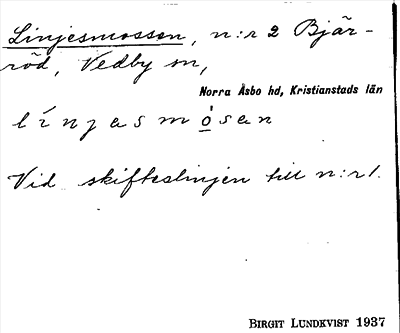 Linjesmossen, n:r 2 Bjär-
röd, Vedby sn,
Norra Åsbo hd, Kristianstads län
línjasmòsan
Vid skifteslinjen till n:r 1.
BIRGIT LUNDKVIST 1937